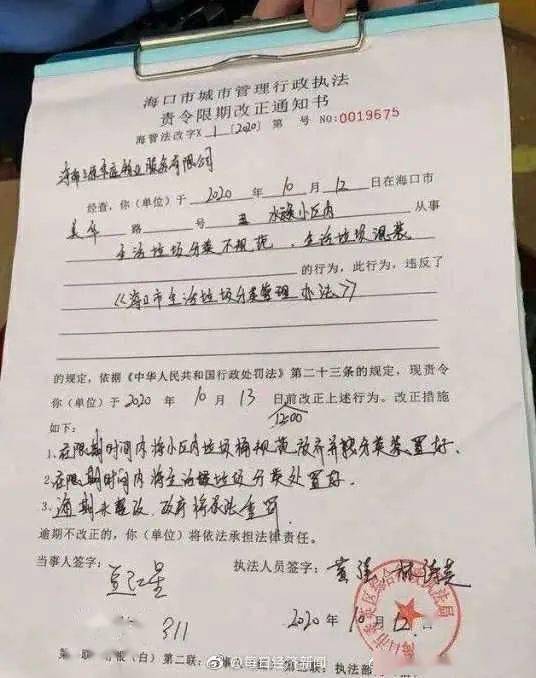 海口市城市管理行政执法
责令限期改正通知书
海管法改字X 1 [2020] 第 号 NO:0019675
服务有限公司
经查,你(单位)于 2020 年 10 月 12 日在海口市
美华 路 号 小区内 从事
生活垃圾分类不规范、生活垃圾混装
的行为,此行为,违反了
《海口市生活垃圾分类管理办法》
的规定,依据《中华人民共和国行政处罚法》第二十三条的规定,现责令
你(单位)于 2020 年 10 月 13 日前改正上述行为。改正措施
12:00
如下:
1、在限期时间内将小区内垃圾桶规范放齐并按分类装置好.
2、在限期时间内将生活垃圾分类处置好.
3、逾期未整改,政府将依法重罚
逾期不改正的,你(单位)将依法承担法律责任。
当事人签字: 执法人员签字:
红星
311 2020 年 10 月 12 日
@每日经济新闻